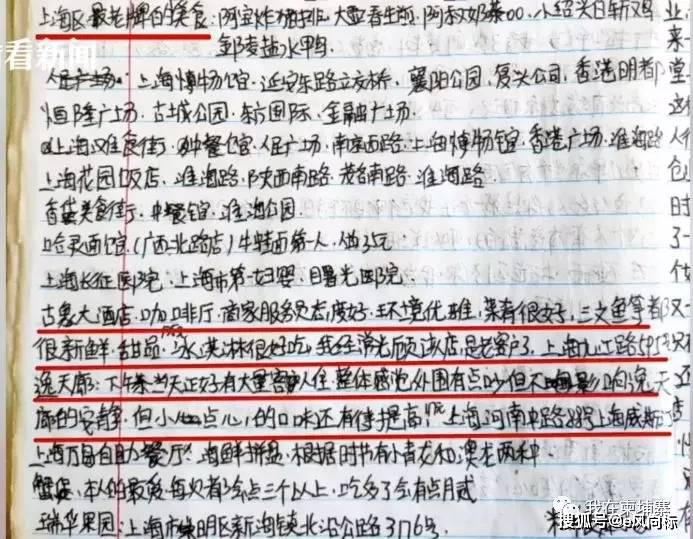 看看新闻
上海区最老牌的美食:阿宝炸猪排、大壶春生煎、阿叔奶茶00、小绍兴白斩鸡
邵万盐水鸭
人民广场、上海博物馆、延安东路立交桥、襄阳公园、复兴公司、香港明都
恒隆广场、古城公园、东方国际、金融广场
上海美食街、中餐馆、人民广场、南京西路、上海博物馆、香港广场、淮海路
上海花园饭店、淮海路、陕西南路、茂名南路、淮海路
美食街、中餐馆、淮海公园
哈灵面馆、(广西北路店)牛蛙面第一人、做25元
上海长征医院、上海市第一妇婴、曙光医院
古象大酒店、咖啡厅、商家服务员态度好、环境优雅、菜肴很好、三文鱼等都
很新鲜、甜品、冰淇淋很好吃、我经常光顾该店、是老客户了、上海九江路595号
逸天廊:下午茶当天正好有大量客人住、整体感觉外围有点吵但不影响逸天
廊的安静、但小点心的口味还有待提高、上海河南中路88号上海威斯汀
上海万易自助餐厅、海鲜拼盘、根据时节有小青龙和澳龙两种
蟹煲、本人的最爱每次都会点三个以上、吃多了会有点月贰
瑞华果园:上海市崇明区新海镇北沿公路3176号
我在柬埔寨
搜狐号@风向标